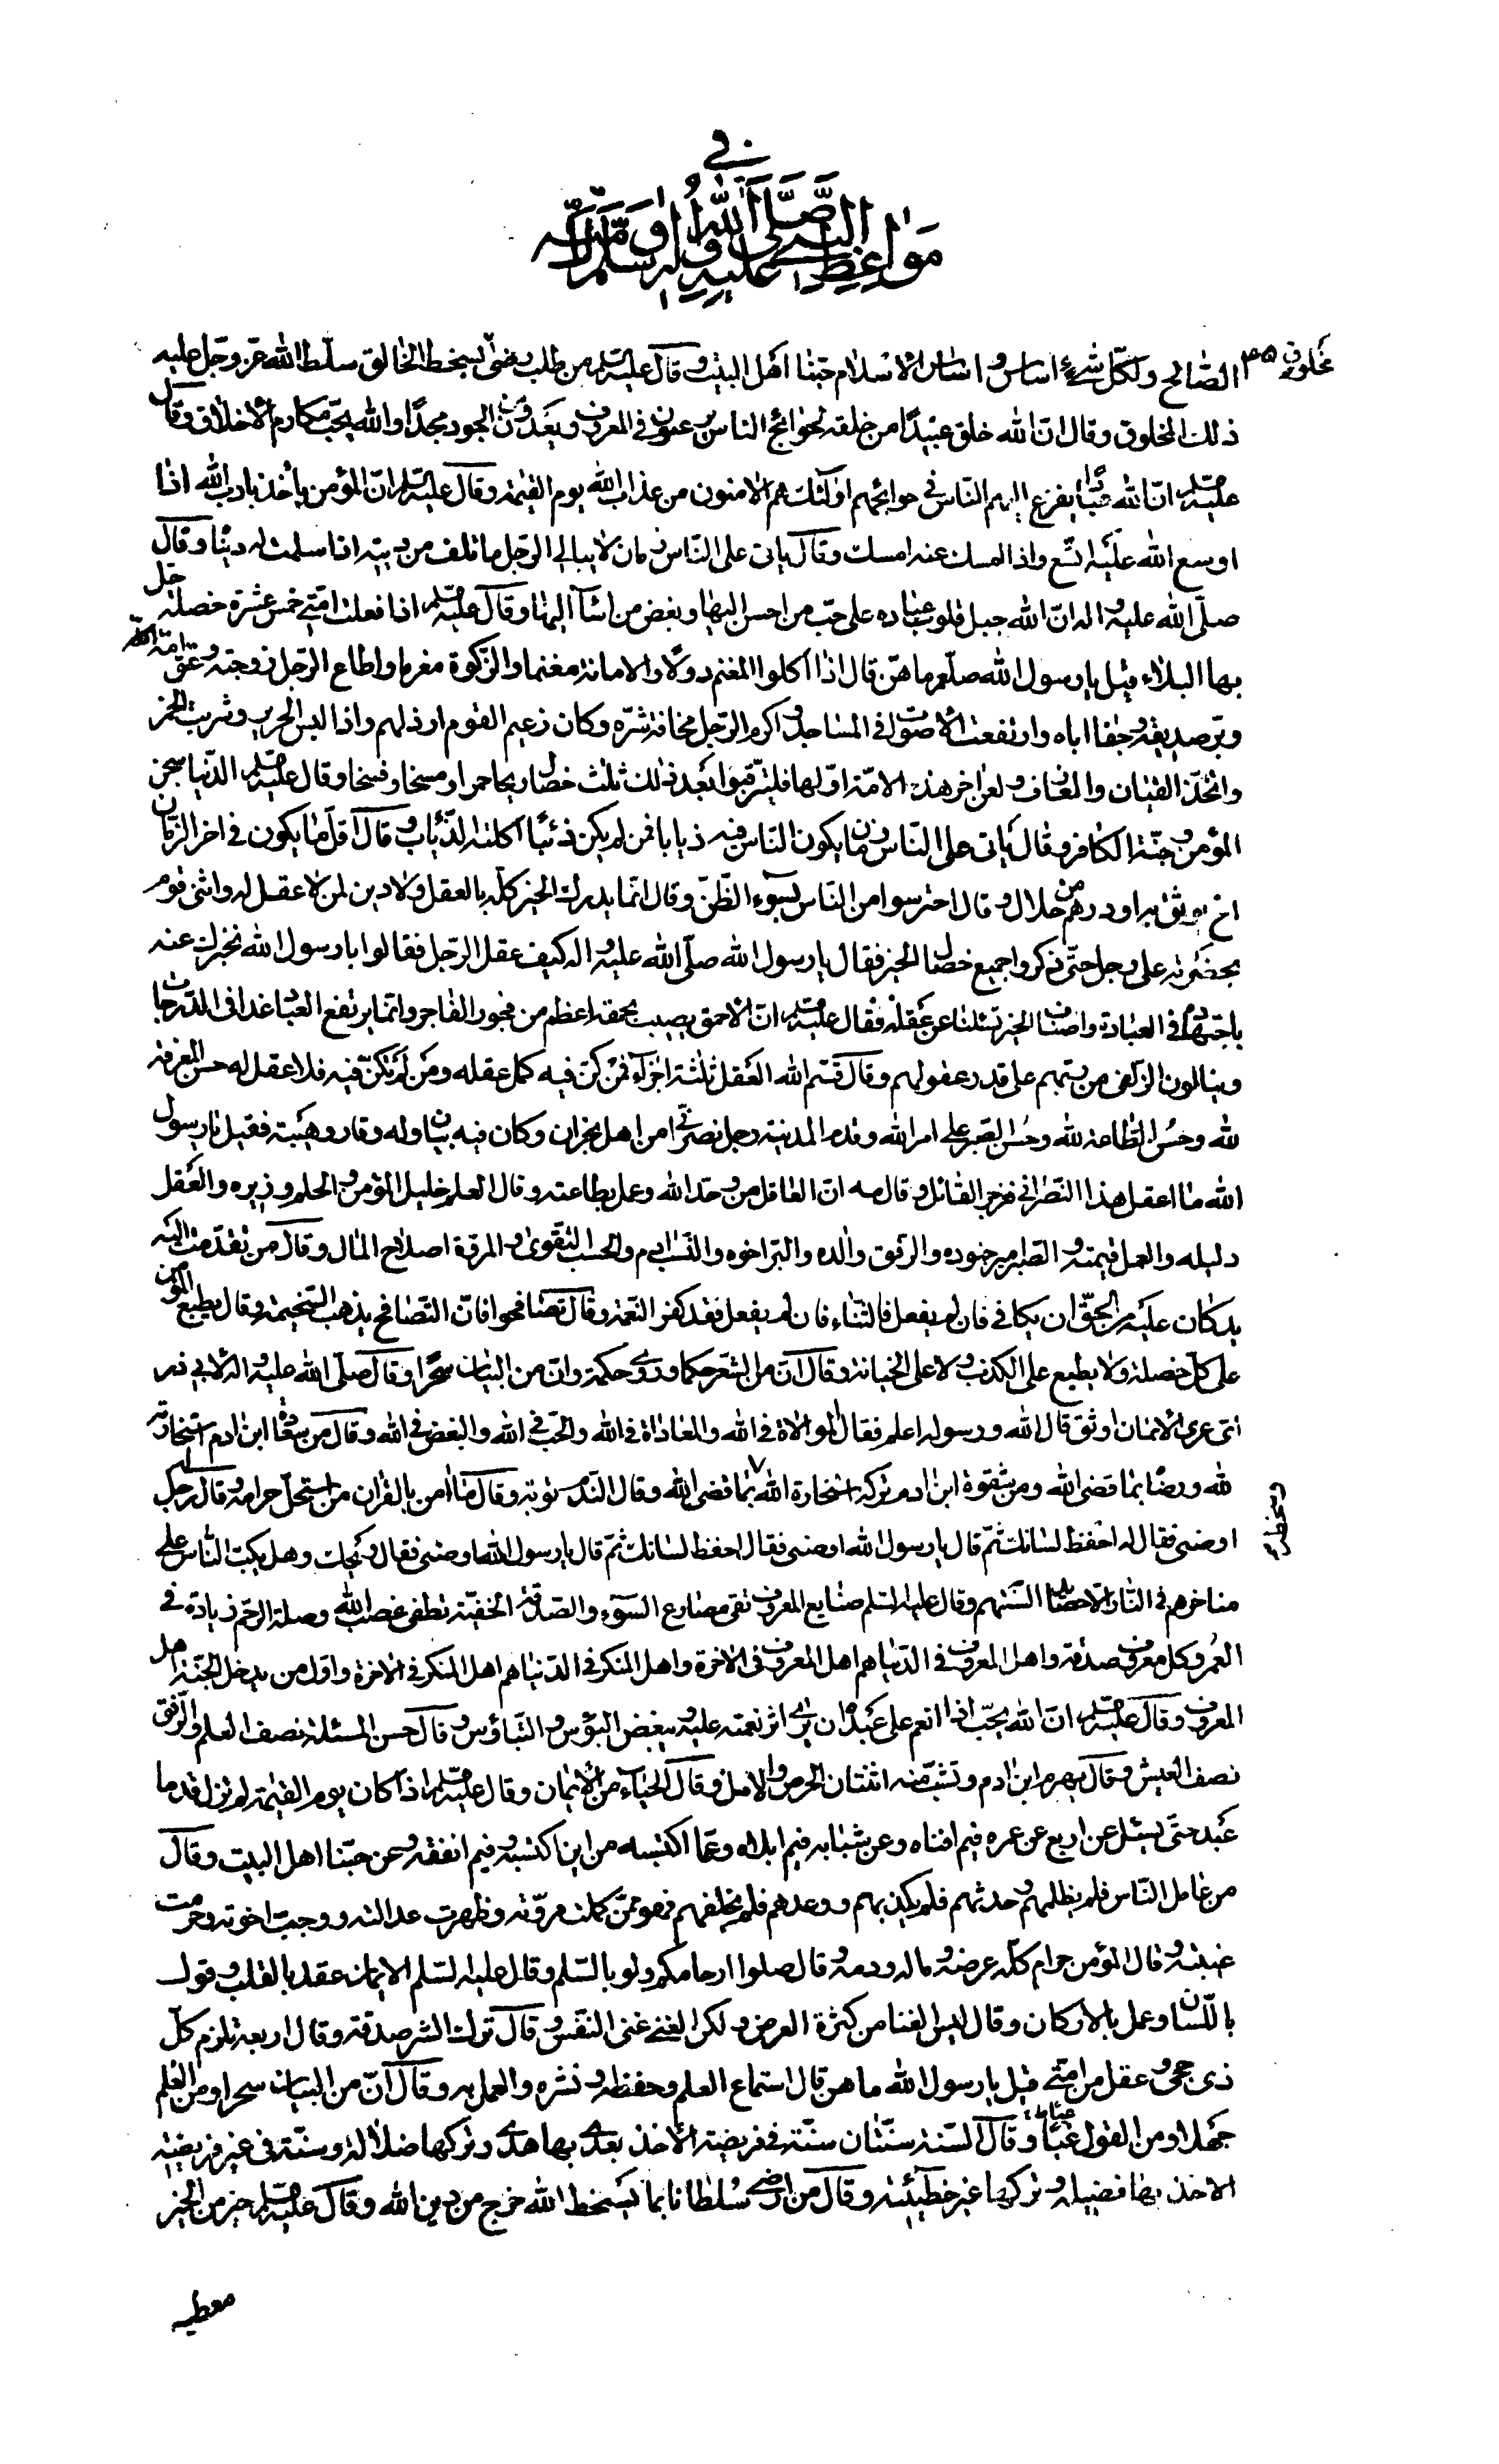 في
مواعظ النبي صلى الله عليه وآله وسلم
الصالح ولكل شيء اساس واساس الاسلام حبنا اهل البيت وقال عليه السلم من طلب رضى بسخط الخالق سلط الله عز وجل عليه
مخلوق
ذلك المخلوق وقال ان الله خلق عبيدا من خلقه لحوائج الناس يرغبون في المعروف ويعدون الجود مجدا والله يحب مكارم الاخلاق وقال
عليه السلم ان لله عبادا يفزع اليهم الناس في حوائجهم اولئك هم الامنون من عذاب الله يوم القيمة وقال عليه السلم ان المؤمن يأخذ بادب الله اذا
اوسع الله عليه اتسع واذا امسك عنه امسك وقال ياتي على الناس زمان لا يبالي الرجل ما تلف من دينه اذا سلمت له دنياه وقال
صلى الله عليه واله ان الله جبل قلوب عباده على حب من احسن اليها وبغض من اساء اليها وقال عليه السلم اذا فعلت امتي خمس عشرة خصلة حل
بها البلاء قيل يا رسول الله صلعم ما هن قال اذا اكلوا المغنم دولا والامانة مغنما والزكوة مغرما واطاع الرجل زوجته وعق امه
وبر صديقه وجفا اباه وارتفعت الاصوات في المساجد واكرم الرجل مخافة شره وكان زعيم القوم ارذلهم واذا لبس الحرير وشربت الخمر
واتخذ القيان والمعازف ولعن اخر هذه الامة اولها فليترقبوا بعد ذلك ثلث خصال ريحا حمرا ومسخا وفسخا وقال عليه السلم الدنيا سجن
المؤمن وجنة الكافر وقال ياتي على الناس زمان يكون الناس فيه ذيابا فمن لم يكن ذئبا اكلته الذئاب وقال اقل ما يكون في اخر الزمان
اخ يوثق به او درهم من حلال وقال احترسوا من الناس بسوء الظن وقال انما يدرك الخير كله بالعقل ولا دين لمن لا عقل له واثنى قوم
بحضرته على رجل حتى ذكروا جميع خصال الخير فقال يا رسول الله صلى الله عليه واله كيف عقل الرجل فقالوا يا رسول الله نخبرك عنه
باجتهاده في العبادة واصناف الخير تسئلنا عن عقله فقال عليه السلم ان الاحمق يصيب بحمقه اعظم من فجور الفاجر وانما يرتفع العباد غدا في الدرجات
وينالون الزلفى من ربهم على قدر عقولهم وقال قسم الله العقل ثلثة اجزاء فمن كن فيه كمل عقله ومن لم تكن فيه فلا عقل له حسن المعرفة
لله وحسن الطاعة لله وحسن الصبر على امر الله وقدم المدينة رجل نصراني من اهل نجران وكان فيه بيان وله وقار وهيبة فقيل يا رسول
الله ما اعقل هذا النصراني فزجر القائل وقال مه ان العاقل من وحد الله وعمل بطاعته وقال العلم خليل المؤمن والحلم وزيره والعقل
دليله والعمل قيمته والصبر امير جنوده والرفق والده والبر اخوه والنسب ادم والحسب التقوى والمروة اصلاح المال وقال من تقدمت اليه
يد كان عليه من الحق ان يكافي فان لم يفعل فالثناء فان لم يفعل فقد كفر النعمة وقال تصافحوا فان التصافح يذهب السخيمة وقال يطبع المؤمن
على كل خصلة ولا يطبع على الكذب ولا على الخيانة وقال ان من الشعر حكما وروي حكمة وان من البيان سحرا وقال صلى الله عليه واله لابي ذر
اي عرى الايمان اوثق قال الله ورسوله اعلم فقال الموالاة في الله والمعاداة في الله والحب في الله والبغض في الله وقال من سعادة ابن ادم استخارته
لله ورضاه بما قضى الله ومن شقوة ابن ادم تركه استخارة الله بما قضى الله وقال الندم توبة وقال ما امن بالقران من استحل حرامه وقال له رجل
وسخطه
اوصني فقال له احفظ لسانك ثم قال يا رسول الله اوصني فقال احفظ لسانك ثم قال يا رسول الله اوصني فقال ويحك وهل يكب الناس على
مناخرهم في النار الا حصائد السنتهم وقال عليه السلم صنايع المعروف تقي مصارع السوء والصدقة الخفية تطفي غضب الله وصلة الرحم زيادة في
العمر وكل معروف صدقة واهل المعروف في الدنيا هم اهل المعروف في الاخرة واهل المنكر في الدنيا هم اهل المنكر في الاخرة واول من يدخل الجنة اهل
المعروف وقال عليه السلم ان الله يحب اذا انعم على عبد ان يرى اثر نعمته عليه ويبغض البؤس والتباؤس وقال حسن المسئلة نصف العلم والرفق
نصف العيش وقال يهرم ابن ادم وتشب منه اثنتان الحرص والامل وقال الحياء من الايمان وقال عليه السلم اذا كان يوم القيمة لم تزل قدما
عبد حتى يسئل عن اربع عن عمره فيم افناه وعن شبابه فيم ابلاه وعما اكتسبه من اين اكتسبه وفيم انفقه وعن حبنا اهل البيت وقال
من عامل الناس فلم يظلمهم وحدثهم فلم يكذبهم ووعدهم فلم يخلفهم فهو ممن كملت مروته وظهرت عدالته ووجبت اخوته وحرمت
غيبته وقال المؤمن حرام كله عرضه وماله ودمه وقال صلوا ارحامكم ولو بالسلم وقال عليه السلم الايمان عقد بالقلب وقول
باللسان وعمل بالاركان وقال ليس الغنا من كثرة العرض ولكن الغنى غنى النفس وقال ترك الشر صدقة وقال اربعة تلزم كل
ذي حجى وعقل من امتي قيل يا رسول الله ما هن قال استماع العلم وحفظه ونشره والعمل به وقال ان من البيان سحرا ومن العلم
جهلا ومن القول عيا وقال السنة سنتان سنة في فريضة الاخذ بعدي بها هدى وتركها ضلالة وسنة في غير فريضة
الاخذ بها فضيلة وتركها غير خطيئة وقال من ارضى سلطانا بما يسخط الله خرج من دين الله وقال عليه السلم خير من الخير
معطيه